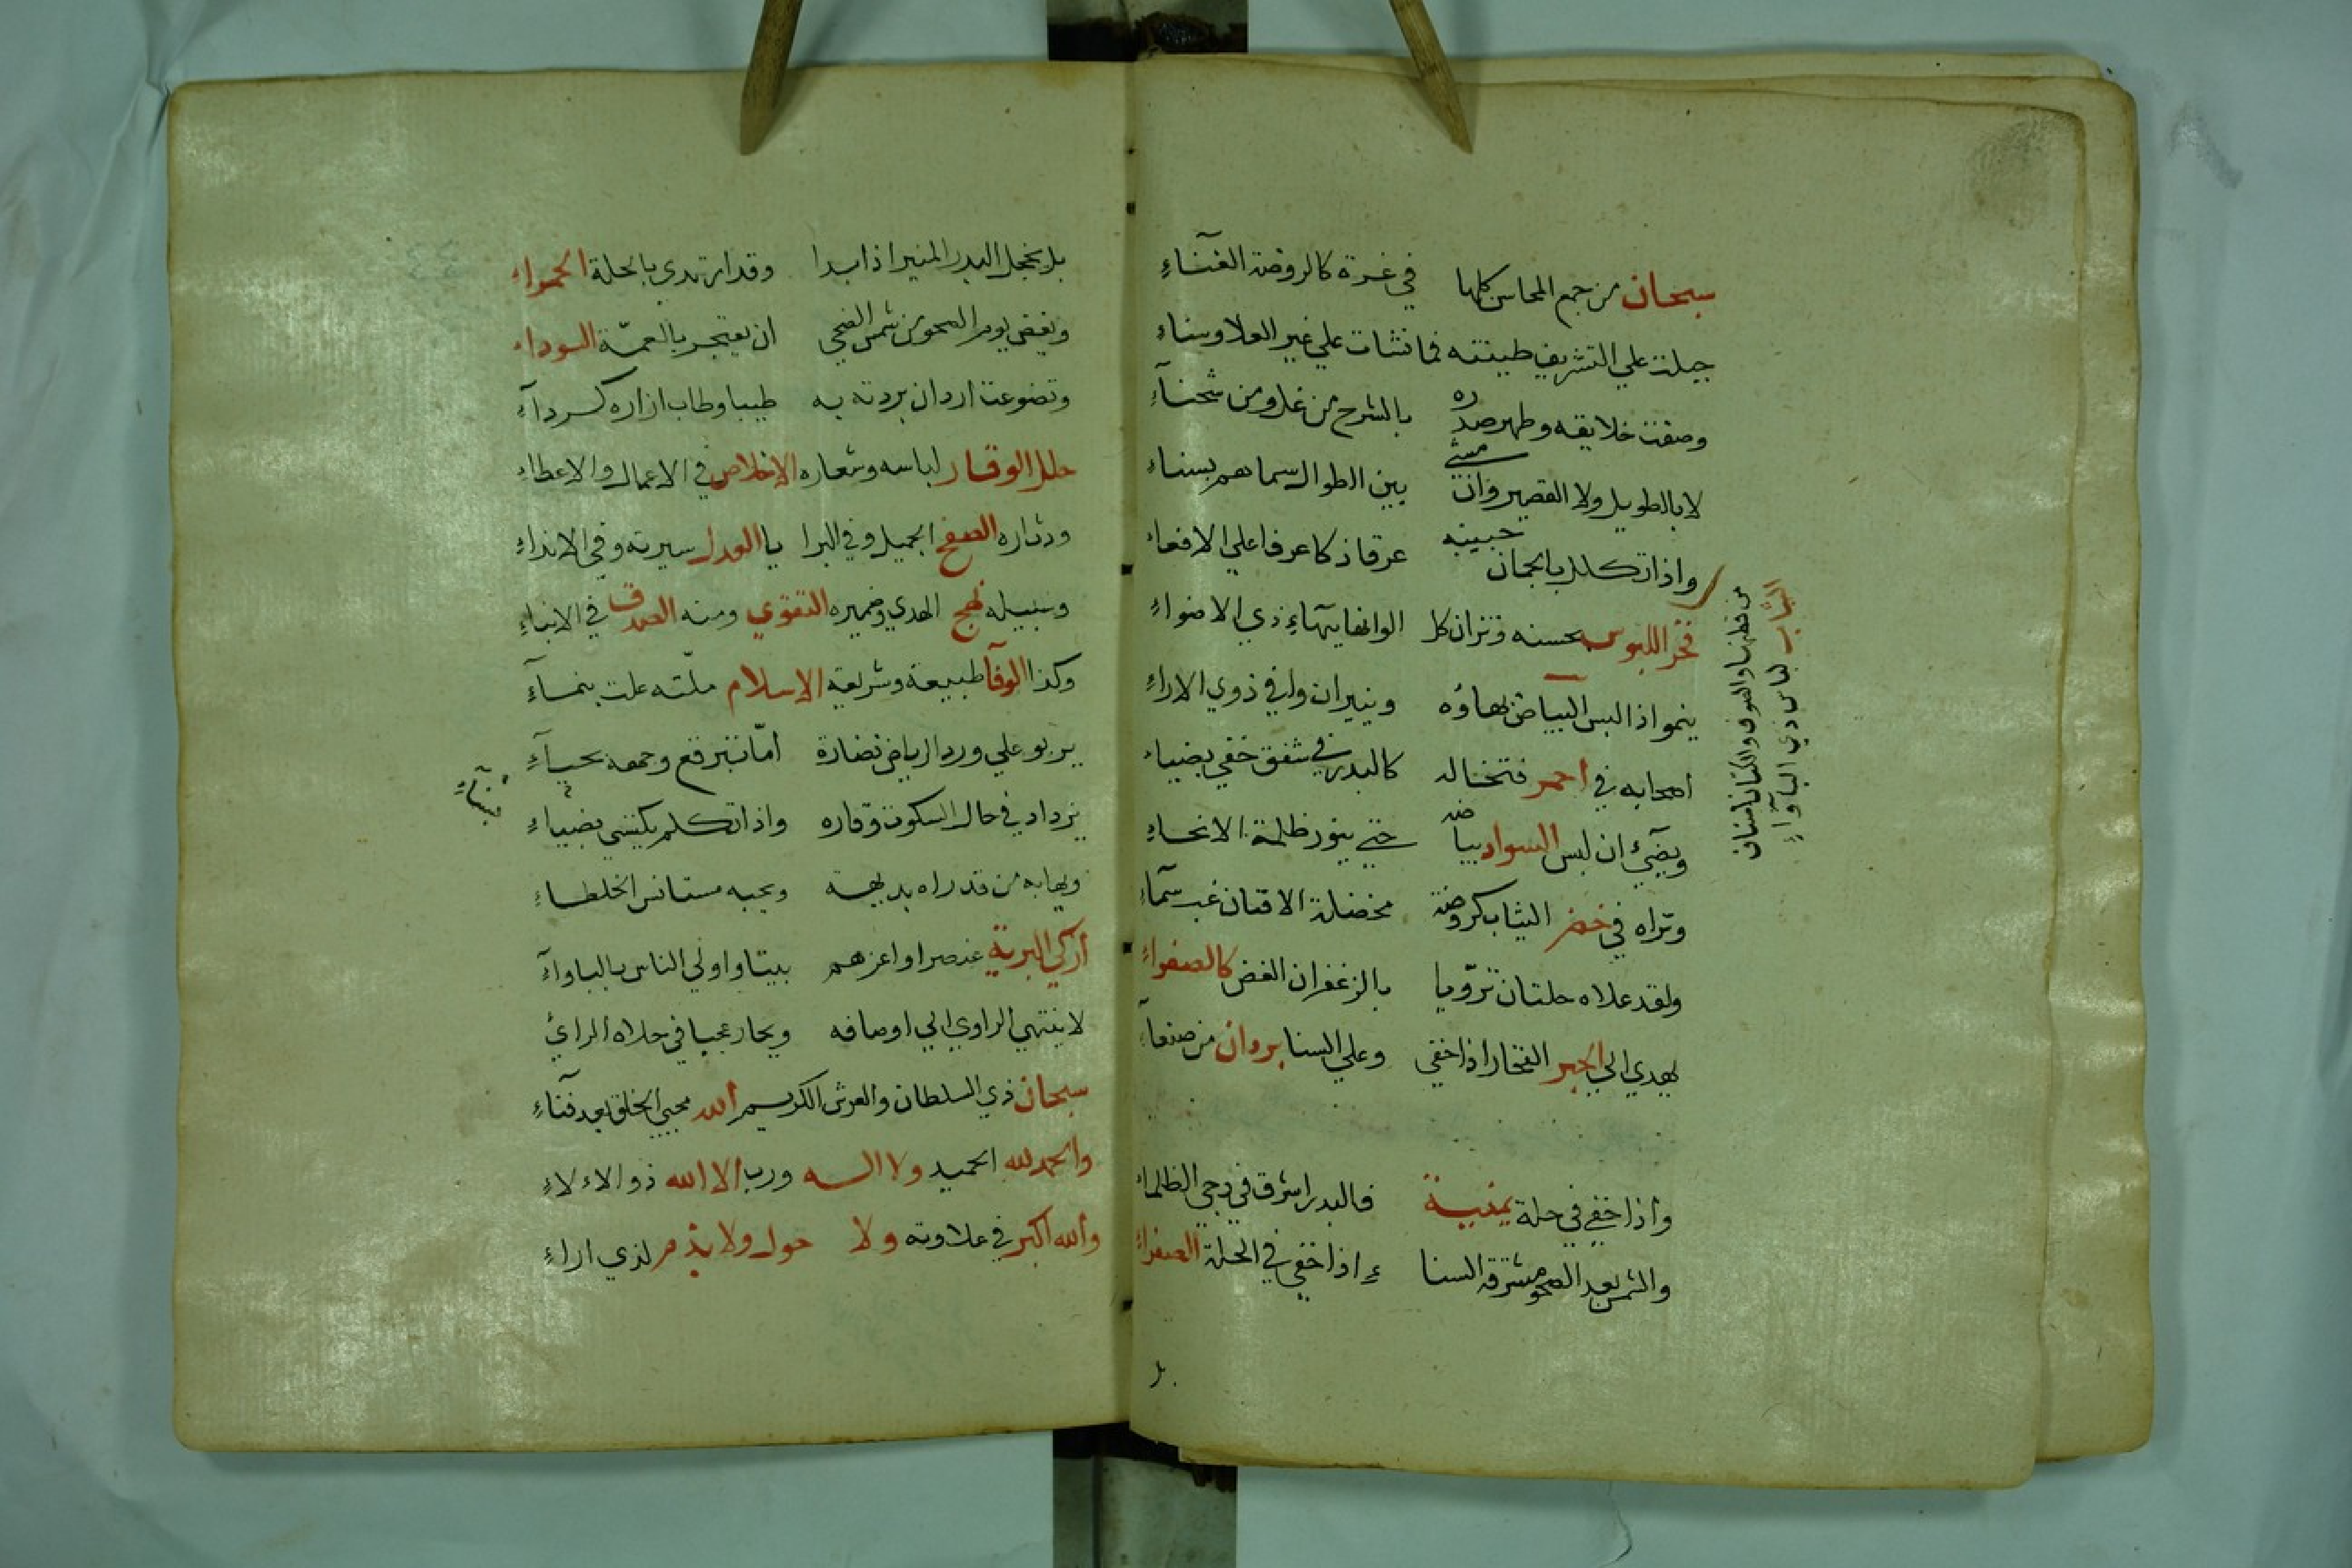 سبحان من جمع المحاسن كلها في غرة كالروضة الغنآء
جبلت علي التشريف طينته فما نشات علي غير العلا وسناء
وصفت خلايقه وطهر صدره بالشرح من غل ومن شحنآء
لا بالطويل ولا القصير وان مشي بين الطوال سما هم بسناء
واذا تكلل بالجمان جبينه عرقا ذكا عرفا علي الافعاء
فخر اللبوس بحسنه وتزان كل الوانها ببهاء ذي الاضواء
من قطنها والصوف والكتان اسنان
الثياب لباس ذي الباوآء
ينمو اذا لبس البياض بهاؤه وينير ان وافي ذوي الاراء
اصحابه في احمر فتخاله كالبدر في شفق خفي بضياء
ويضيء ان لبس السواد بياضه حتي ينور ظلمة الانحاء
وتراه في خضر الثياب كروضة مخضلة الافنان غب سمآء
ولقد علاه حلتان تروّيا بالزعفران الغض كالصفراء
يهدي الي الحبر الفخار اذا خفي وعلي السنا بردان من صنعآء
واذا خفي في حلة يمنية فالبدر اشرق في دجي الظلماء
والشمس بعد الصحو مشرقة السنا ء اذا خفي في الحلة الصفراء
بل
بل يخجل البدر المنير اذا بدا وقد ارتدي بالحلة الحمراء
ويغض يوم الصحو من شمس الضحي ان يعتجر بالعمّة السوداء
وتضوعت اردان بردته به طيبا وطاب ازاره كردآء
حلل الوقار لباسه وشعاره الاخلاص في الاعمال والاعطاء
ودثاره الصفح الجميل وفي البرا يا العدل سيرته وفي الانداء
وسبيله نهج الهدي وضميره التقوي ومنه الصدق في الانباء
وكذا الوفآ طبيعة وشريعة الاسلام ملّته علت بنمآء
يربو علي ورد الرياض نضارة امّا تبرقع وجهه بحيآء
يزداد في حال السكوت وقاره واذا تكلم يكتسي بضياء
بسنآء
ويهابه من قد راه بديهة ويحبه مستانس الخلطاء
أزكي البرية عنصرا واعزهم بيتا واولي الناس بالباوآء
لا ينتهي الراوي الي اوصافه ويحار عجبا في حلاه الرائ
سبحان ذي السلطان والعرش الكريم الله محيي الخلق بعد فنآء
والحمد لله الحميد ولا اله ورب الا الله ذو الالاء
والله اكبر في علاوته ولا حول ولا بذمر لذي اراء